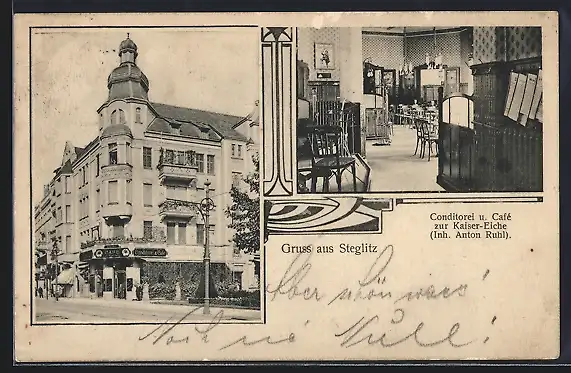 Conditorei u. Café
zur Kaiser-Eiche
(Inh. Anton Ruhl).
Gruss aus Steglitz
Aber schön war's!
Noch 'ne Null!